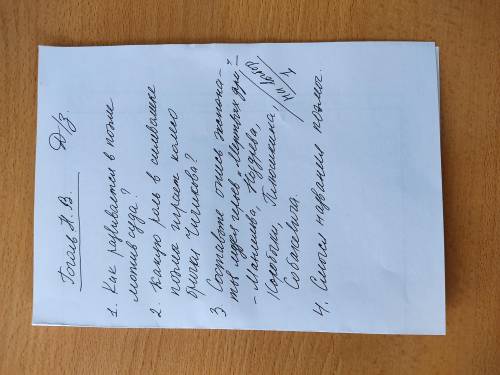 Гоголь Н. В. Д/З.
1. Как развивается в поэме
мотив суда?
2. Какую роль в символике
поэмы играет колесо
брички Чичикова?
3. Составьте опись экспона-
тов музея героев „Мертвых душ"
- Манилова, Ноздрева,
Коробочки, Плюшкина,
Собакевича.
4. Смысл названия поэмы.